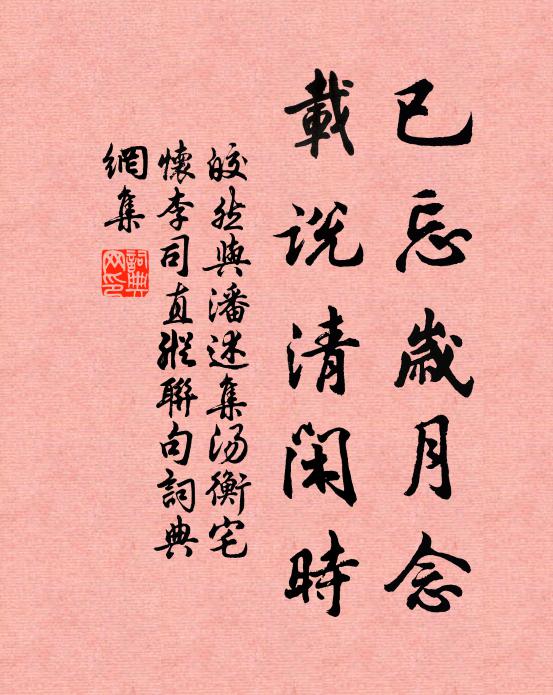 已忘歲月念
載說清閑時
皎然與潘述集湯衡宅
懷李司直縱聯句詞典
網集
詞典網印